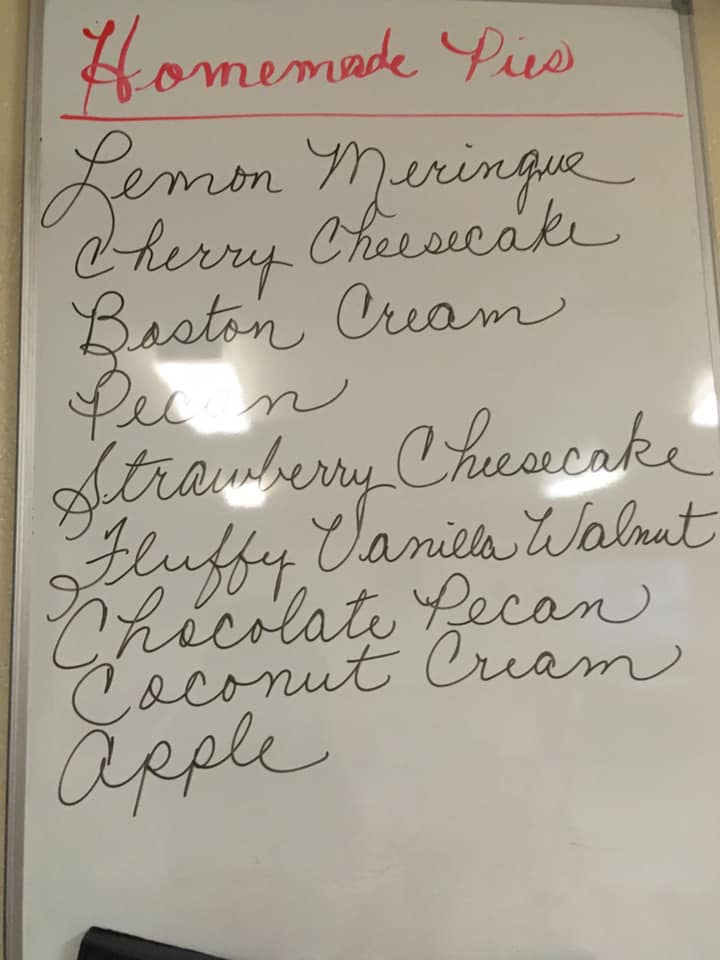 Homemade Pies
Lemon Meringue
Cherry Cheesecake
Boston Cream
Pecan
Strawberry Cheesecake
Fluffy Vanilla Walnut
Chocolate Pecan
Coconut Cream
Apple